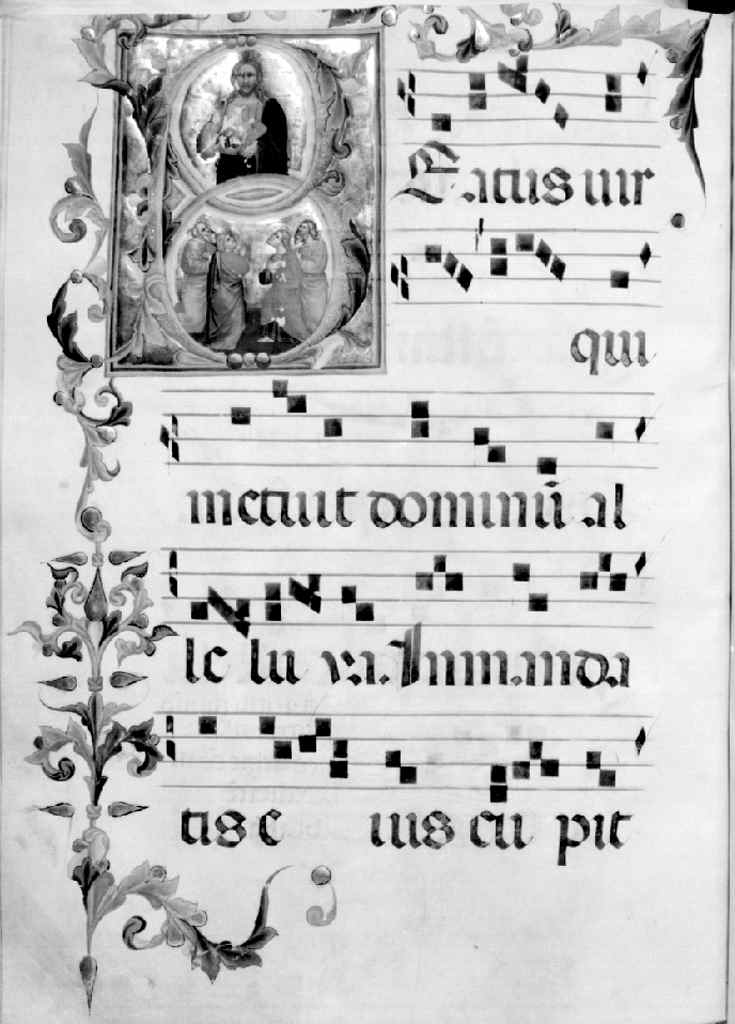 Beatus uir
qui
metuit dominū al
le lu ya. In manda
tis e ius cu pit